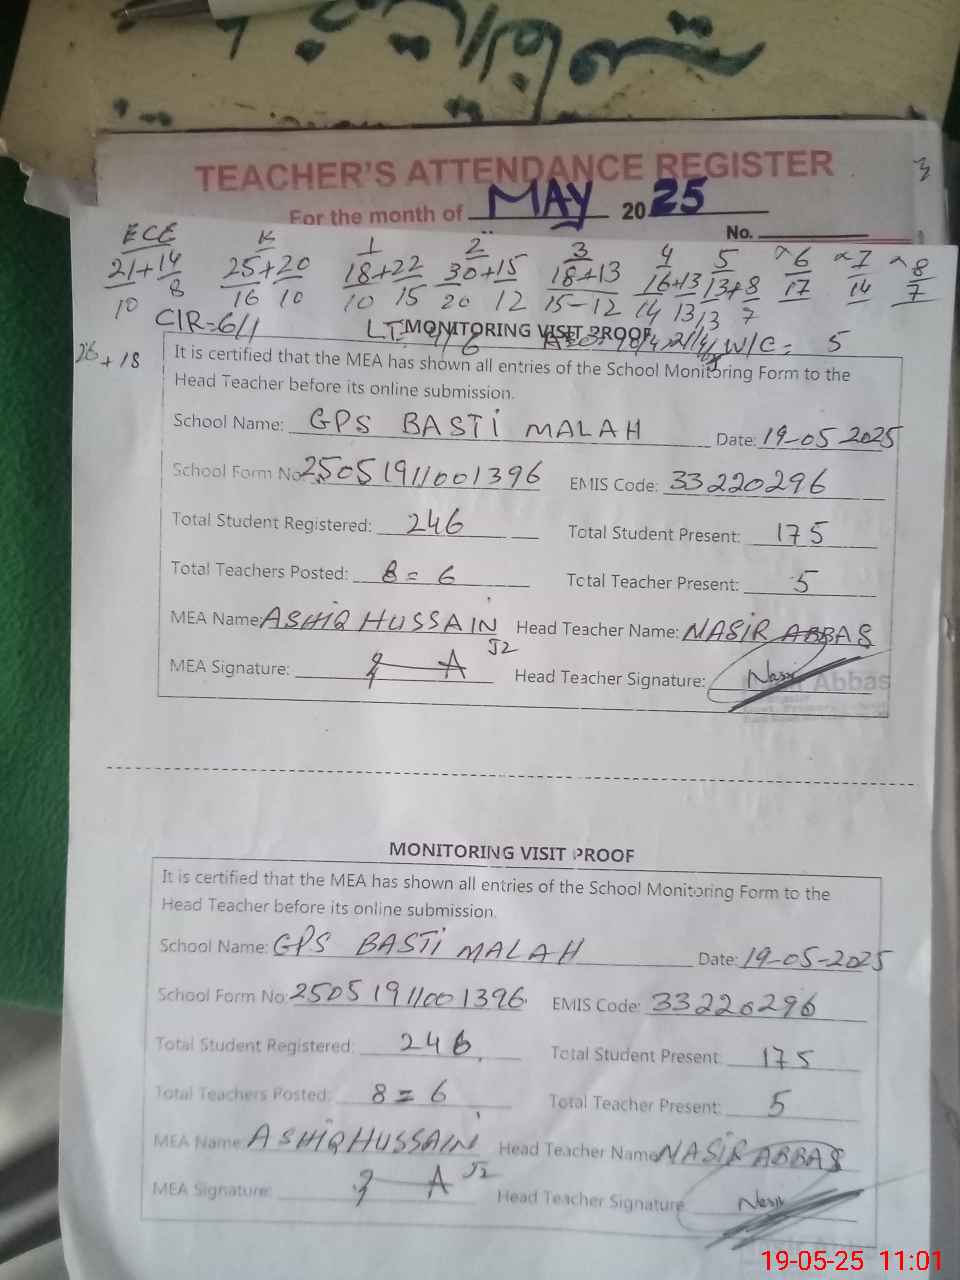 TEACHER'S ATTENDANCE REGISTER
For the month of MAY 2025
No.
ECE K 1 2 3 4 5 6 7 8
21+14 25+20 18+22 30+15 18+13 16+13 13+8 17 14 7
10 8 16 10 10 15 20 12 15-12 14 13 13 7
CIR=6/1 MONITORING VISIT PROOF W/C= 5
26+18
It is certified that the MEA has shown all entries of the School Monitoring Form to the
Head Teacher before its online submission.
School Name: GPS BASTI MALAH Date: 19-05 2025
School Form No: 2505 1911001396 EMIS Code: 33220296
Total Student Registered: 246 Total Student Present: 175
Total Teachers Posted: 8 = 6 Total Teacher Present: 5
MEA Name: ASHIQ HUSSAIN Head Teacher Name: NASIR ABBAS
MEA Signature: A J2 Head Teacher Signature: Nasir
Abbas
MONITORING VISIT PROOF
It is certified that the MEA has shown all entries of the School Monitoring Form to the
Head Teacher before its online submission.
School Name: GPS BASTI MALAH Date: 19-05-2025
School Form No: 2505 1911001396 EMIS Code: 33220296
Total Student Registered: 246 Total Student Present: 175
Total Teachers Posted: 8 = 6 Total Teacher Present: 5
MEA Name: ASHIQ HUSSAIN Head Teacher Name: NASIR ABBAS
MEA Signature: A J2 Head Teacher Signature Nasir
19-05-25 11:01